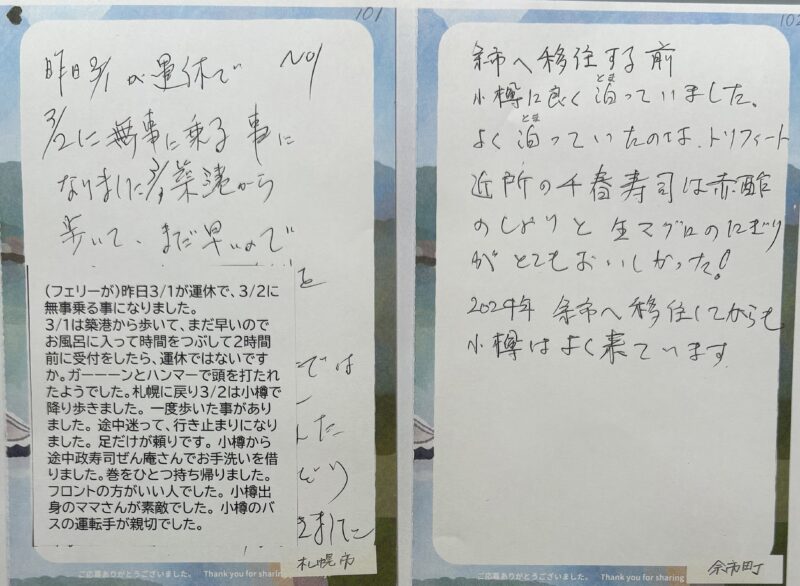 101
No1
昨日3/1が運休で
3/2に無事に乗る事に
なりました3/1築港から
歩いて、まだ早いので
を
(フェリーが)昨日3/1が運休で、3/2に
無事乗る事になりました。
3/1は築港から歩いて、まだ早いので
お風呂に入って時間をつぶして2時間
前に受付をしたら、運休ではないです
か。ガーーーンとハンマーで頭を打たれ
たようでした。札幌に戻り3/2は小樽で
降り歩きました。一度歩いた事があり
ました。途中迷って、行き止まりになり
ました。足だけが頼りです。小樽から
途中政寿司ぜん庵さんでお手洗いを借
りました。巻をひとつ持ち帰りました。
フロントの方がいい人でした。小樽出
身のママさんが素敵でした。小樽のバ
スの運転手が親切でした。
では
んた
どり
きました
札幌市
ご応募ありがとうございました。 Thank you for sharing
102
余市へ移住する前
小樽に良く泊っていました。
とま
よく泊っていたのは、ドリフィート
とま
近所の千春寿司は赤酢
のしゃりと生マグロのにぎり
がとてもおいしかった!
2024年 余市へ移住してからも
小樽はよく来ています
余市町
ご応募ありがとうございました。 Thank you for sharing